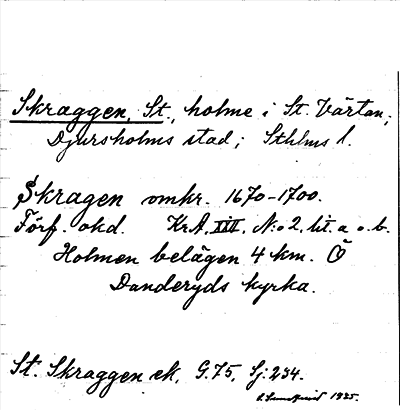 Skraggen, St., holme i St. Värtan;
Djursholms stad; Sthlms l.
Skragen omkr. 1670-1700.
Förf. okd. KrA. XIII. N:o 2, lit. a o. b.
Holmen belägen 4 km. Ö
Danderyds kyrka.
St. Skraggen ek. G. 75, Sj: 234.
1925.